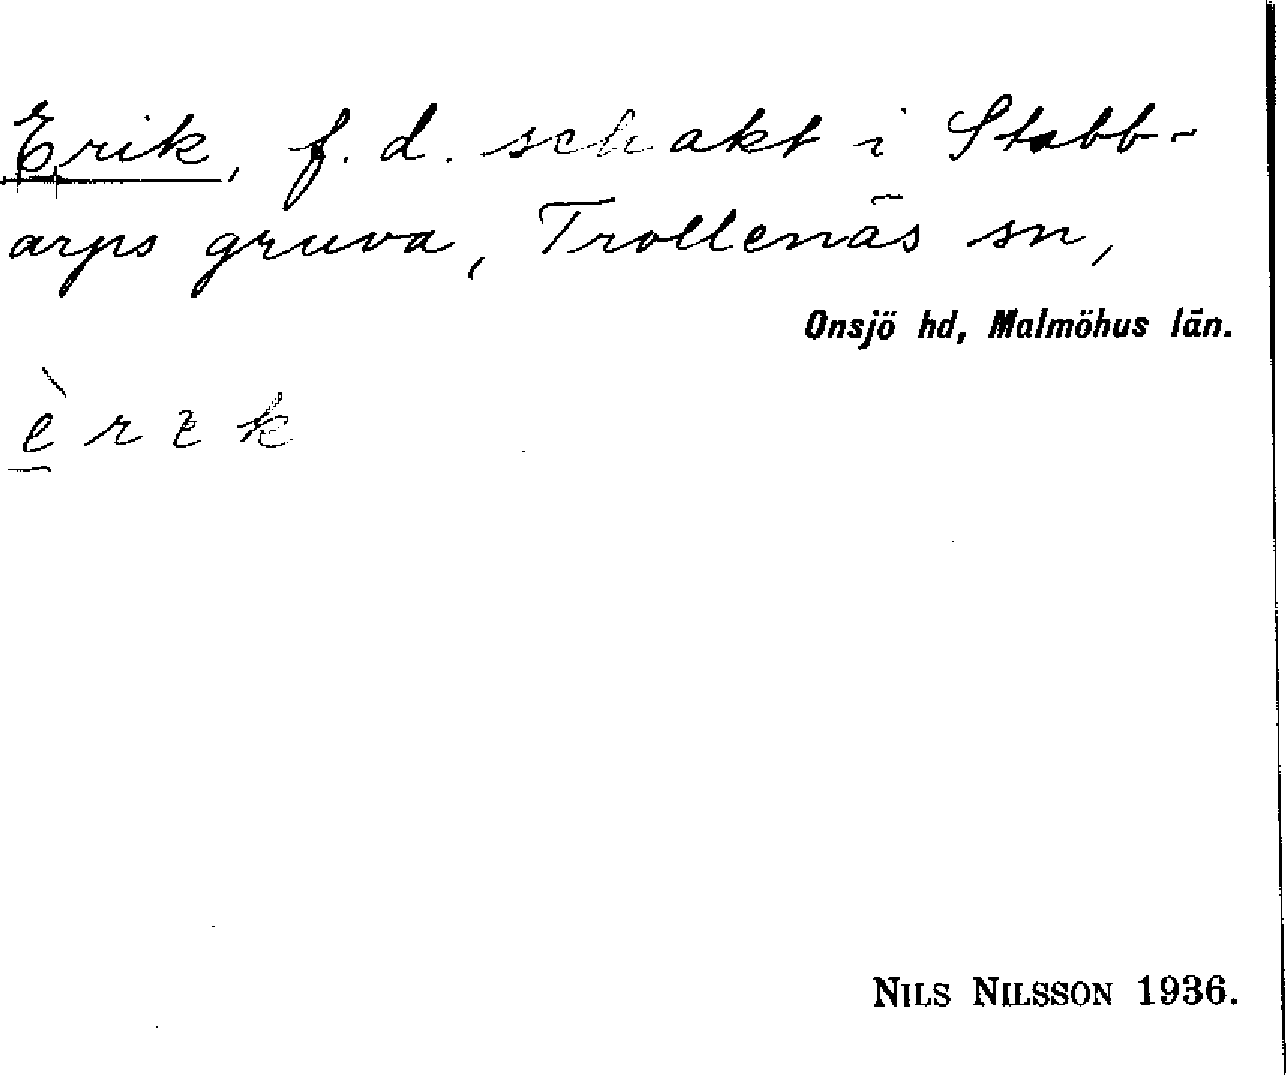 Erik, f. d. schakt i Stabb-
arps gruva, Trollenäs sn,
Onsjö hd, Malmöhus län.
è r ɛ k
NILS NILSSON 1936.